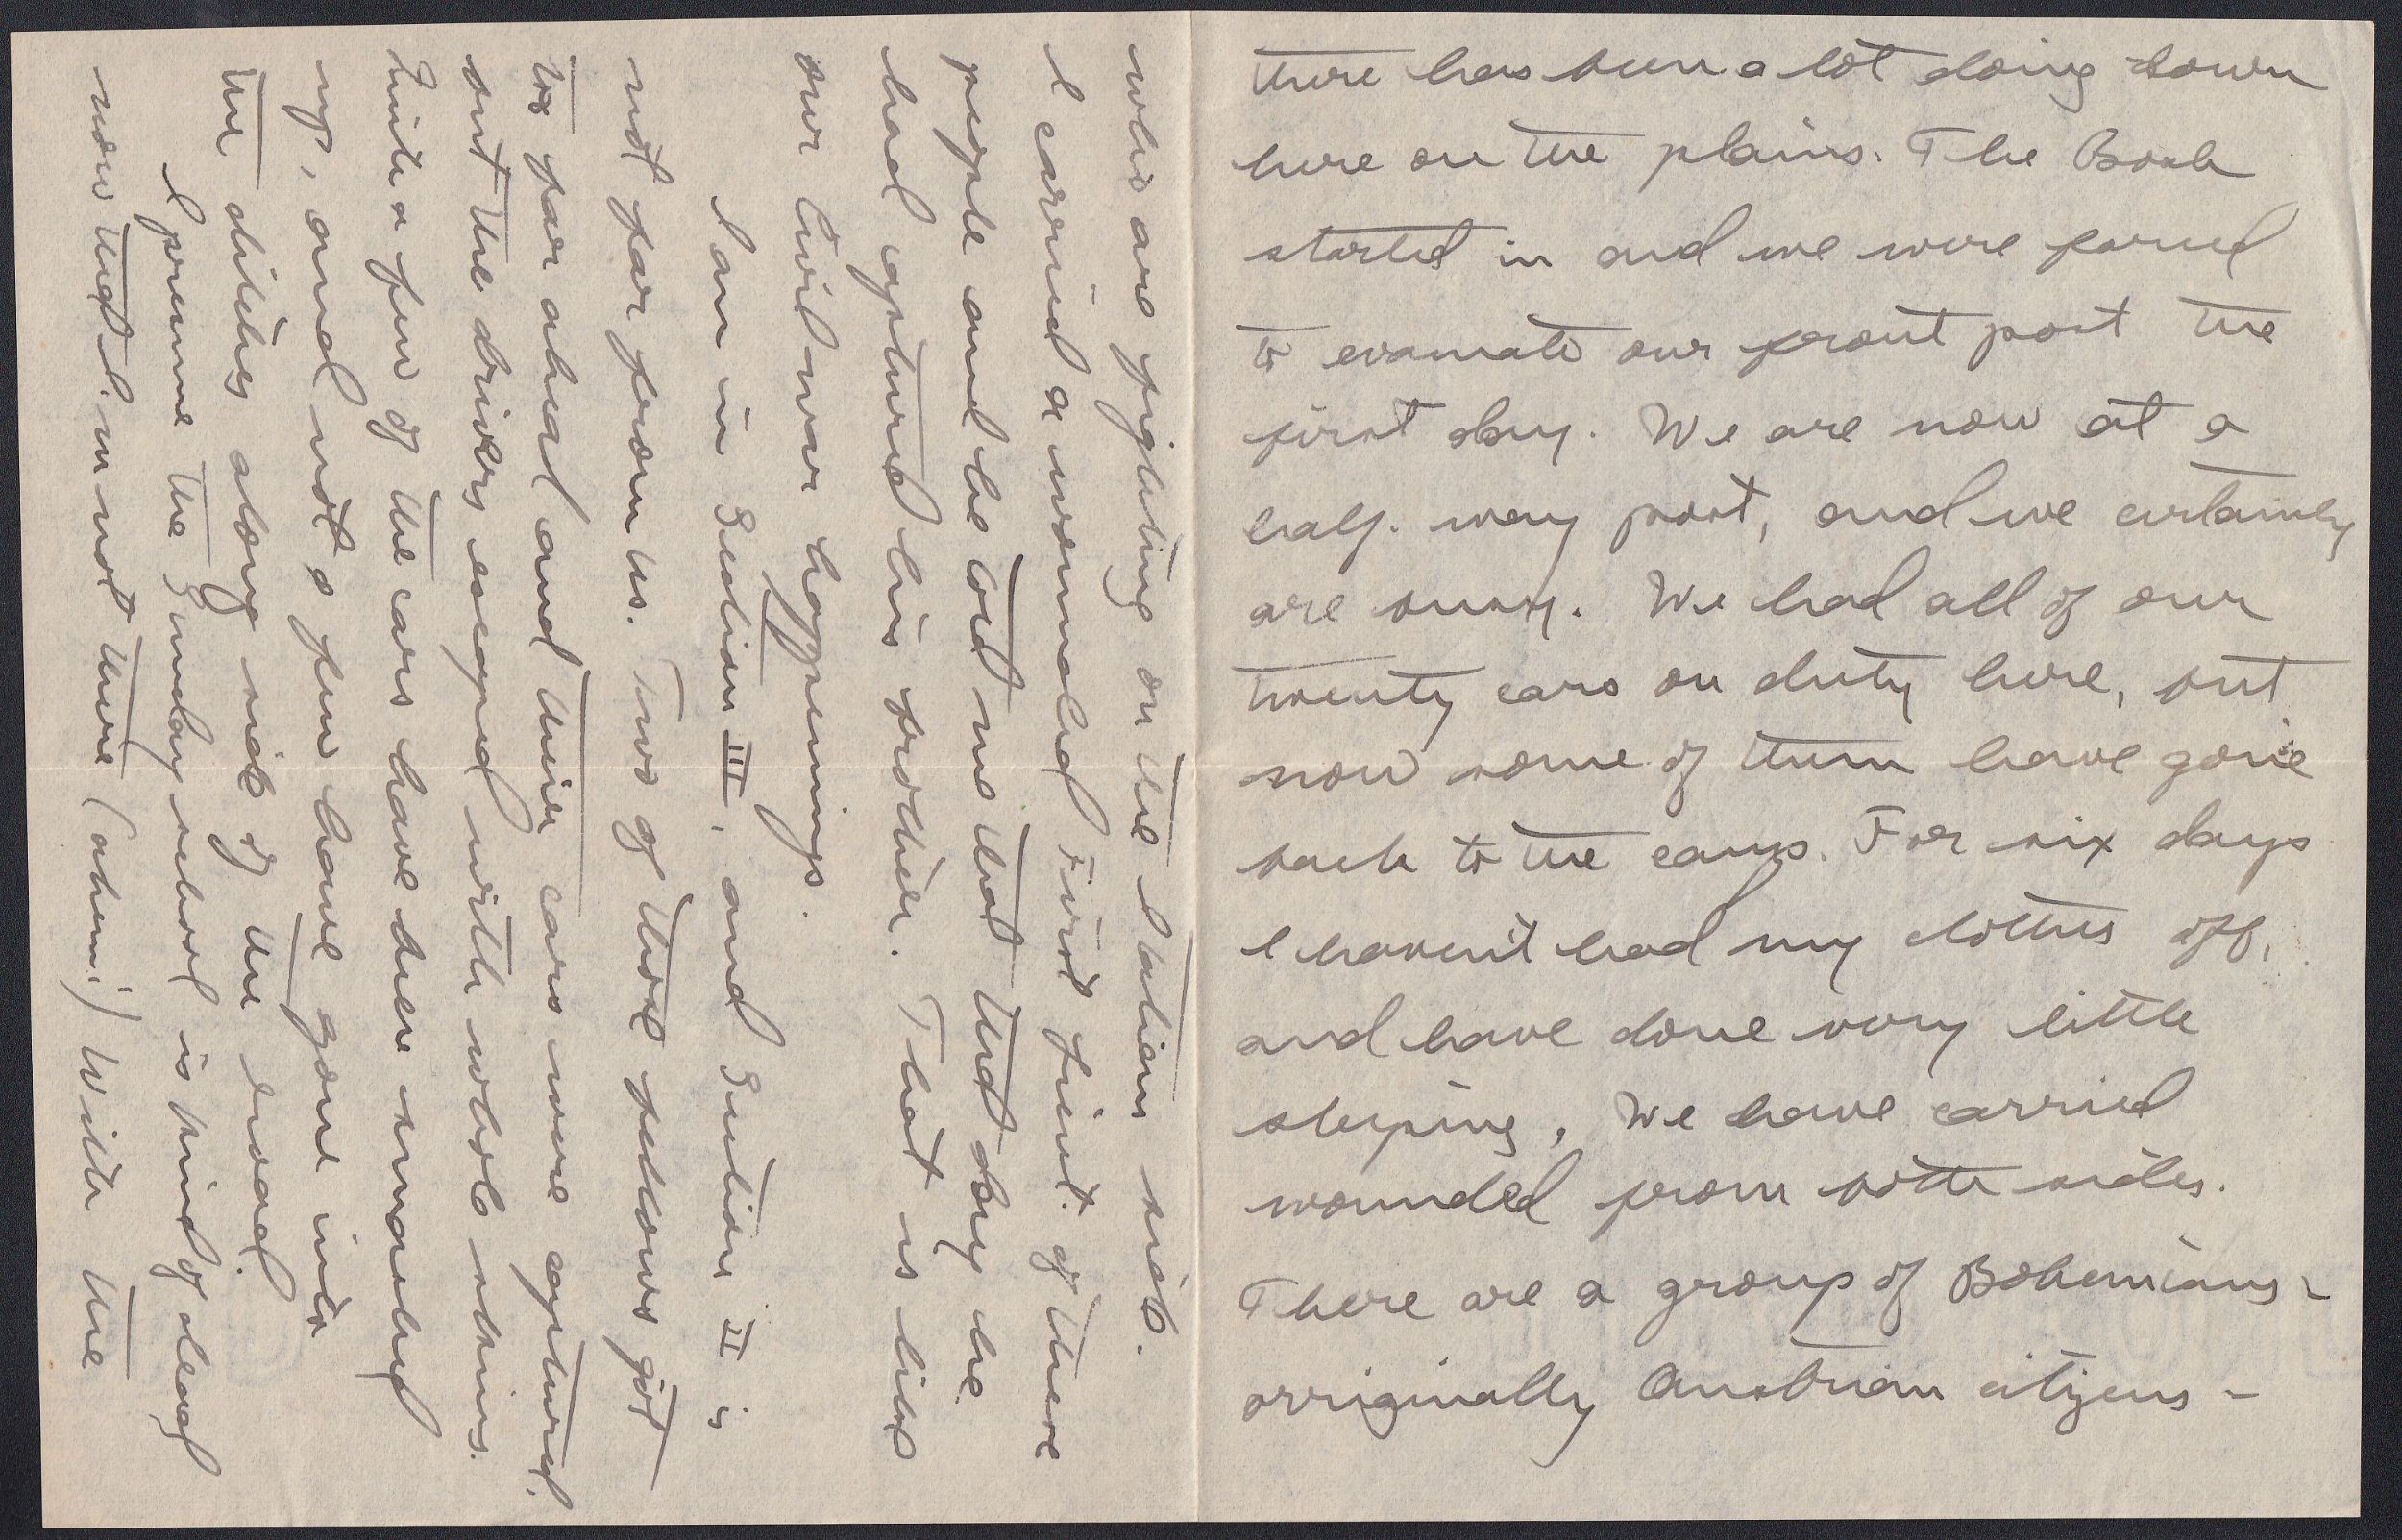 there has been a lot doing down
here on the plains. The Boch
started in and we were forced
to evacuate our front post the
first day. We are now at a
half-way post, and we certainly
are busy. We had all of our
twenty cars on duty here, but
now some of them have gone
back to the camp. For six days
I haven't had my clothes off,
and have done very little
sleeping. We have carried
wounded from both sides.
There are a group of Bohemians -
orriginally Austrian citizens -
who are fighting on the Italian side.
I carried a wounded First Lieut. of these
people and he told me that that day he
had captured his brother. That is like
our Civil war happenings.
I am in Section III, and Section II is
not far from us. Two of those fellows got
too far ahead and their cars were captured,
but the drivers escaped with whole skins.
Quite a few of the cars have been smashed
up, and not a few have gone into
the ditches along side of the road.
I presume the Sunday school is kind of dead
now that I'm not there (ahem!) With the